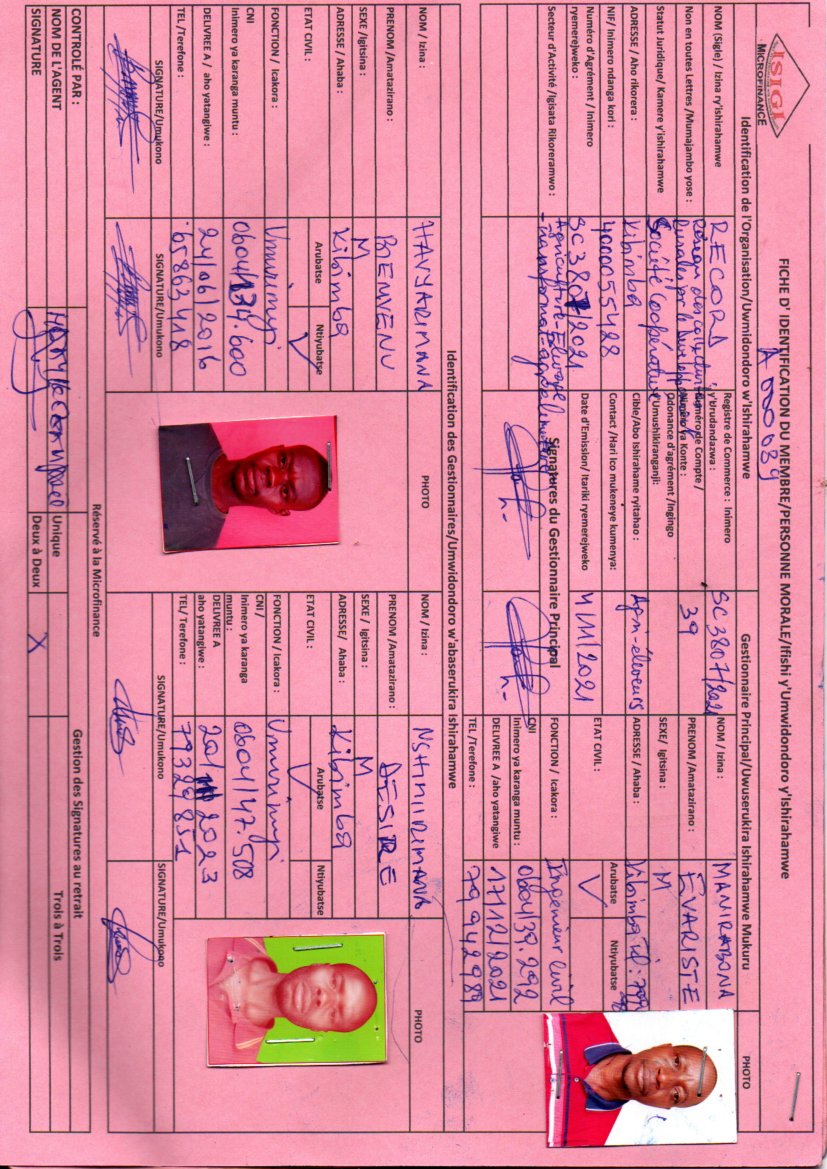 ISIGI
MICROFINANCE
FICHE D' IDENTIFICATION DU MEMBRE/PERSONNE MORALE/Ifishi y'Umwidondoro y'Ishirahamwe
A 000089
Identification de l'Organisation/Uwmidondoro w'Ishirahamwe
Gestionnaire Principal/Uwuserukira Ishirahamwe Mukuru
PHOTO
NOM (Sigle) / Izina ry'ishirahamwe
RECORD
Registre de Commerce : Inimero y'Urudandazwa :
SC3807/2021
NOM / Izina :
MANIRABONA
Non en toutes Lettres /Mumajambo yose :
Numéro de Compte / Numéro ya Konte :
39
PRENOM /Amatazirano :
EVARISTE
Statut Juridique/ Kamere y'ishirahamwe
Société Coopérative
Odonance d'agrément /Ingingo Umushikiranganji:
SEXE/ Igitsina :
M
ADRESSE / Aho rikorera :
Kibimba
Cible/Abo Ishirahame ryitahao :
Agri-éleveurs
ADRESSE / Ahaba :
Kibimba
NIF/ Inimero ndanga kori :
4000055428
Contact /Hari ico mukeneye kumenya:
ETAT CIVIL :
Arubatse
Ntiyubatse
Numéro d'Agrément / Inimero ryemerejweko :
SC3807/2021
Date d'Emission/ Itariki ryemerejweko
4/11/2021
FONCTION / Icakora :
Ingénieur Civil
Secteur d'Activité /Igisata Rikoreramwo :
Agriculture-Elevage
Signatures du Gestionnaire Principal
CNI
Inimero ya karanga muntu :
0604/39.292
DELIVREE A /aho yatangiwe
17/12/2021
TEL /Terefone :
79942989
Identification des Gestionnaires/Umwidondoro w'abaserukira Ishirahamwe
NOM / Izina :
HAVYARIMANA
PHOTO
NOM / Izina :
NSHIMIRIMANA
PHOTO
PRENOM /Amatazirano :
BIENVENU
PRENOM /Amatazirano :
DESIRE
SEXE /Igitsina :
M
SEXE / Igitsina :
M
ADRESSE / Ahaba :
Kibimba
ADRESSE/ Ahaba :
Kibimba
ETAT CIVIL :
Arubatse
Ntiyubatse
ETAT CIVIL :
Arubatse
Ntiyubatse
FONCTION / Icakora :
Umurimyi
FONCTION / Icakora :
Umurimyi
CNI
Inimero ya karanga muntu :
0604/134.600
CNI /
Inimero ya karanga muntu :
0604/147.508
DELIVREE A / aho yatangiwe :
24/06/2016
DELIVREE A
aho yatangiwe :
TEL /Terefone :
65863418
TEL/ Terefone :
79329851
SIGNATURE/Umukono
SIGNATURE/Umukono
SIGNATURE/Umukono
SIGNATURE/Umukono
Réservé à la Microfinance
CONTROLÉ PAR :
Gestion des Signatures au retrait
NOM DE L'AGENT
Unique
Trois à Trois
SIGNATURE
Deux à Deux
X